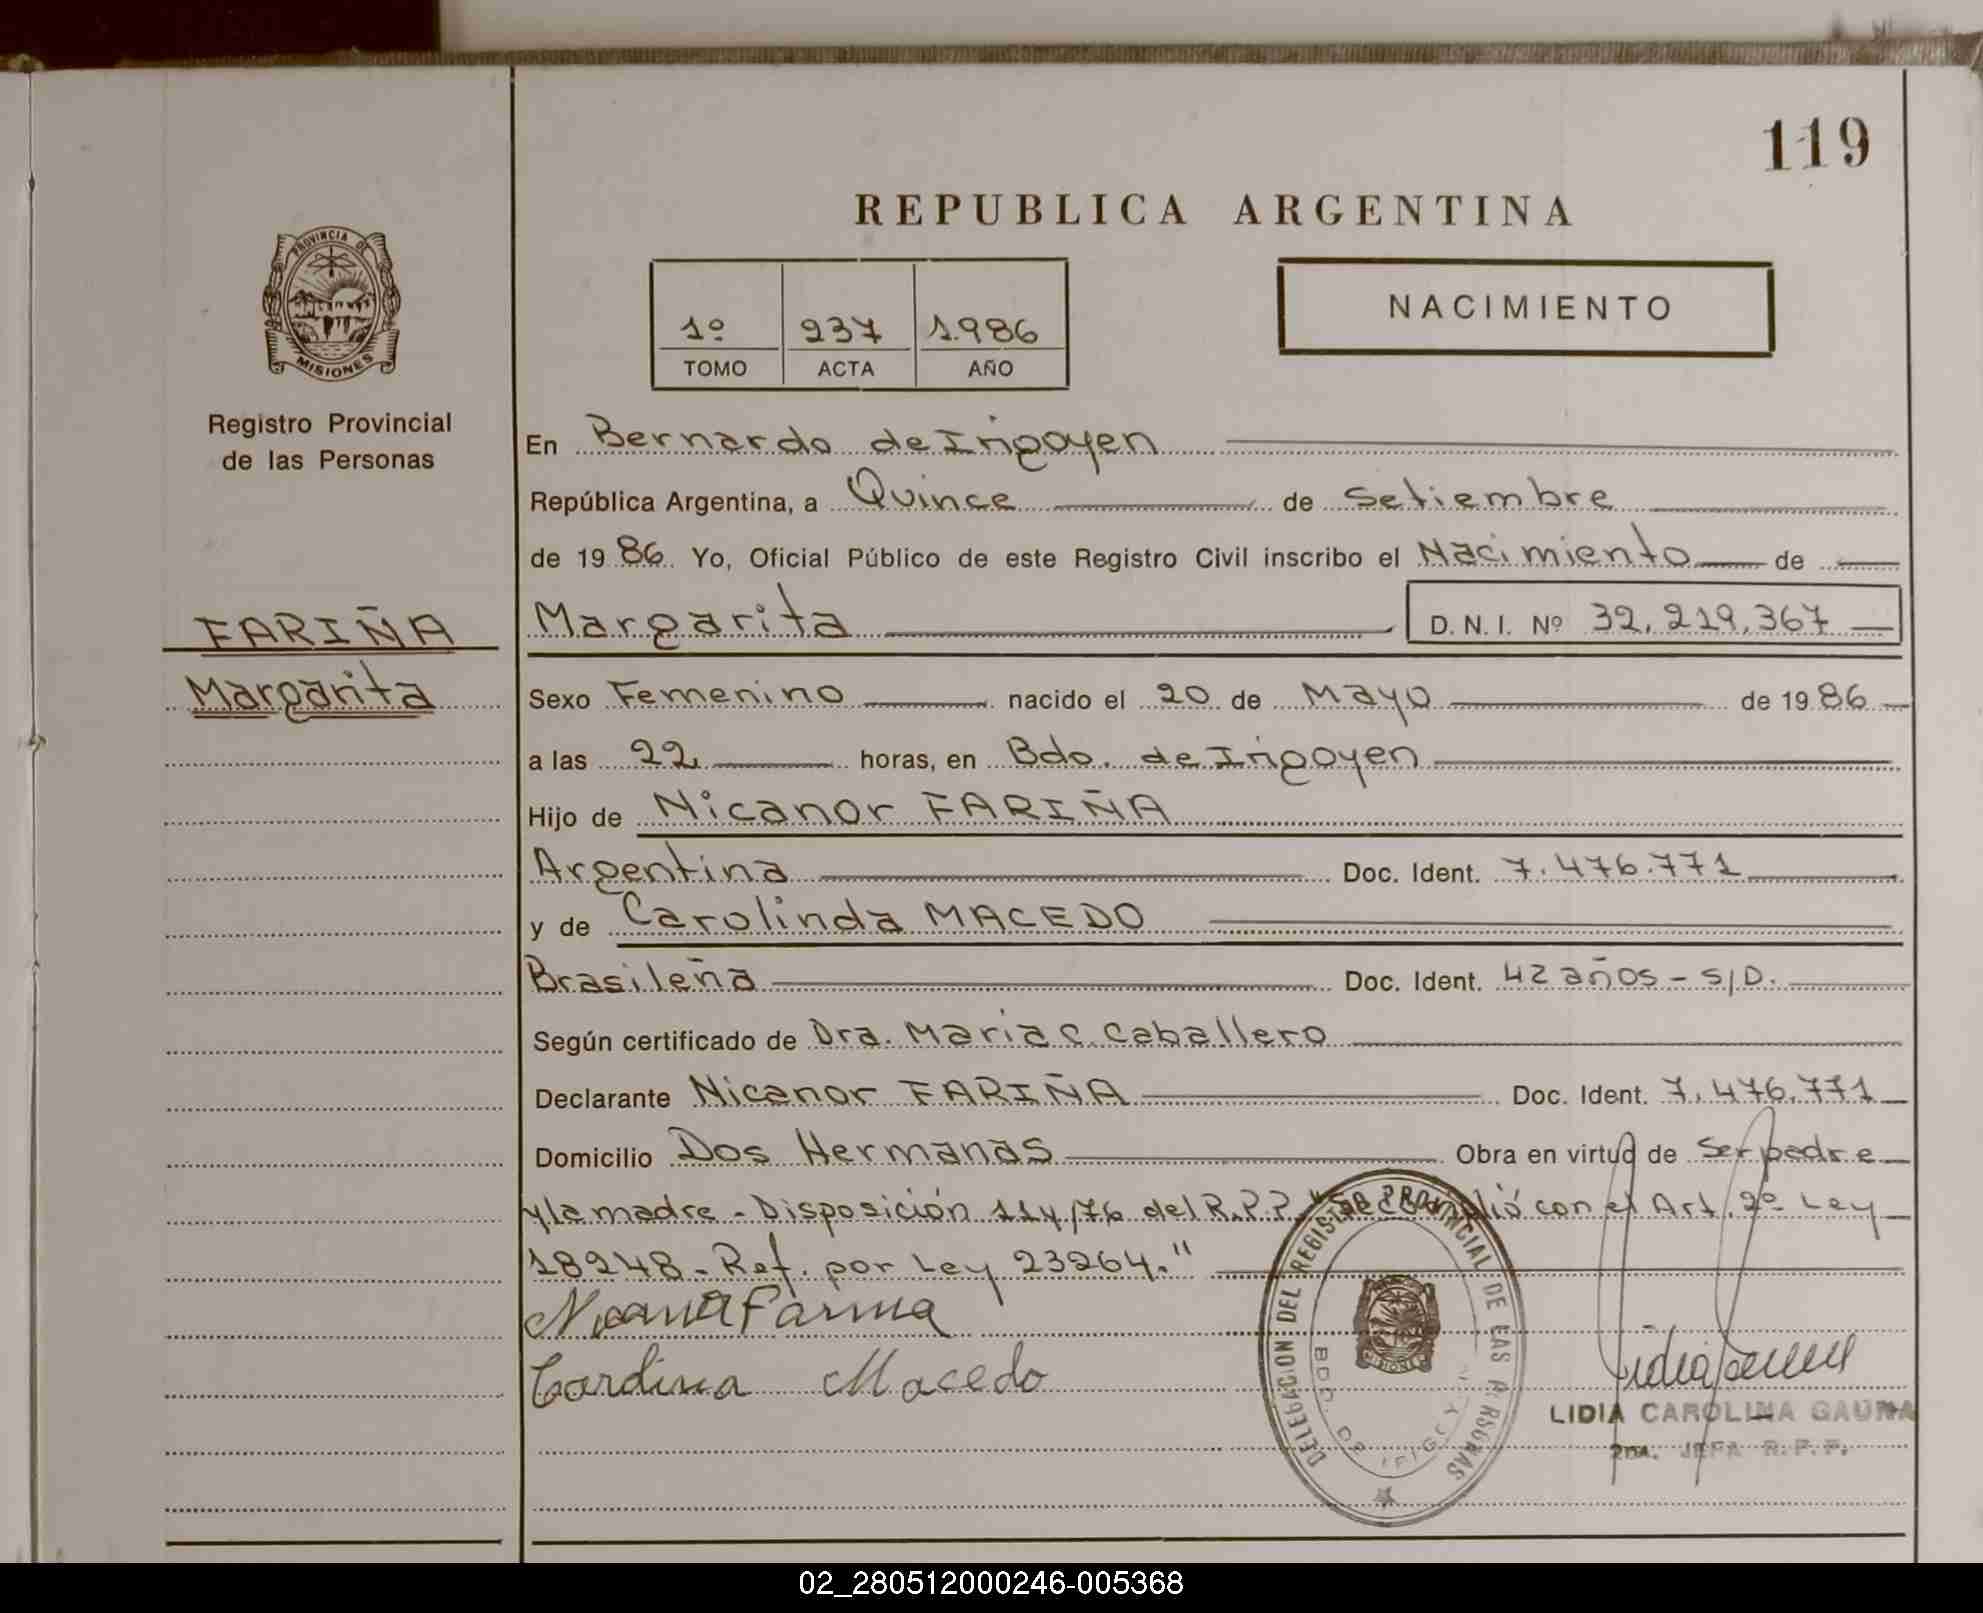 119
REPUBLICA ARGENTINA
PROVINCIA DE
MISIONES
1º 237 1.986
TOMO ACTA AÑO
NACIMIENTO
Registro Provincial
de las Personas
En Bernardo de Irigoyen
República Argentina, a Quince de Setiembre
de 19 86. Yo, Oficial Público de este Registro Civil inscribo el Nacimiento de
FARIÑA
Margarita
Margarita D. N. I. Nº 32,219,367
Sexo Femenino nacido el 20 de Mayo de 19 86
a las 22 horas, en Bdo. de Irigoyen
Hijo de Nicanor FARIÑA
Argentina Doc. Ident. 7.476.771
y de Carolinda MACEDO
Brasileña Doc. Ident. 42 años - S/D.
Según certificado de Dra. Maria C. Caballero
Declarante Nicanor FARIÑA Doc. Ident. 7.476.771
Domicilio Dos Hermanas Obra en virtud de ser padre
y la madre - Disposición 114/76 del R.P.P. con el Art. 2º Ley
18248 - Ref. por Ley 23264."
Nicanor Fariña
Macedo
DELEGACION DEL REGISTRO PROVINCIAL DE LAS PERSONAS
BDO. DE IRIGOYEN
MISIONES
LIDIA CAROLINA GAUNA
2da. JEFA R.P.P.
02_280512000246-005368